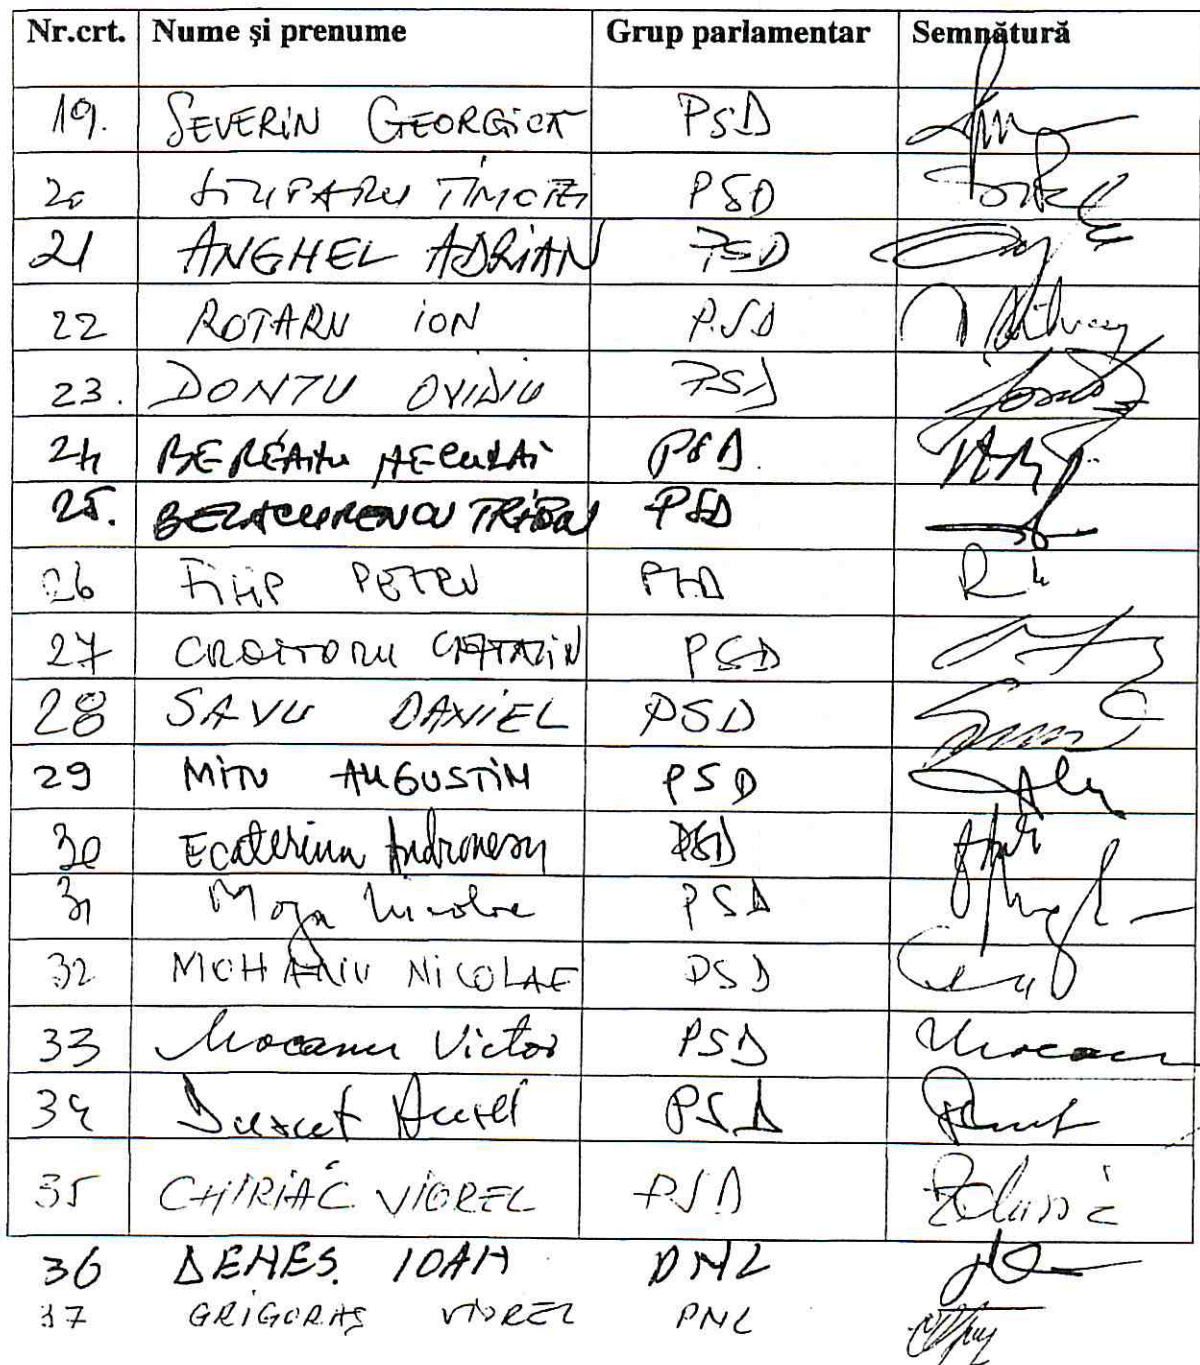 Nr.crt. Nume și prenume Grup parlamentar Semnătură
19. SEVERIN GEORGICĂ PSD
20 STUPARU TIMOTEI PSD
21 ANGHEL ADRIAN PSD
22 ROTARU ION PSD
23. DONȚU OVIDIU PSD
24 PSD
25. PSD
26 FILIP PETRU PSD
27 CROITORU CĂTĂLIN PSD
28 SAVU DANIEL PSD
29 MITU AUGUSTIN PSD
30 Ecaterina Andronescu PSD
31 Moga Nicolae PSD
32 MOHANU NICOLAE PSD
33 Mocanu Victor PSD Mocanu
34 Duruț Aurel PSD
35 CHIRIAC VIOREL PSD
36 DENEȘ IOAN PNL
37 GRIGORAȘ VIOREL PNL